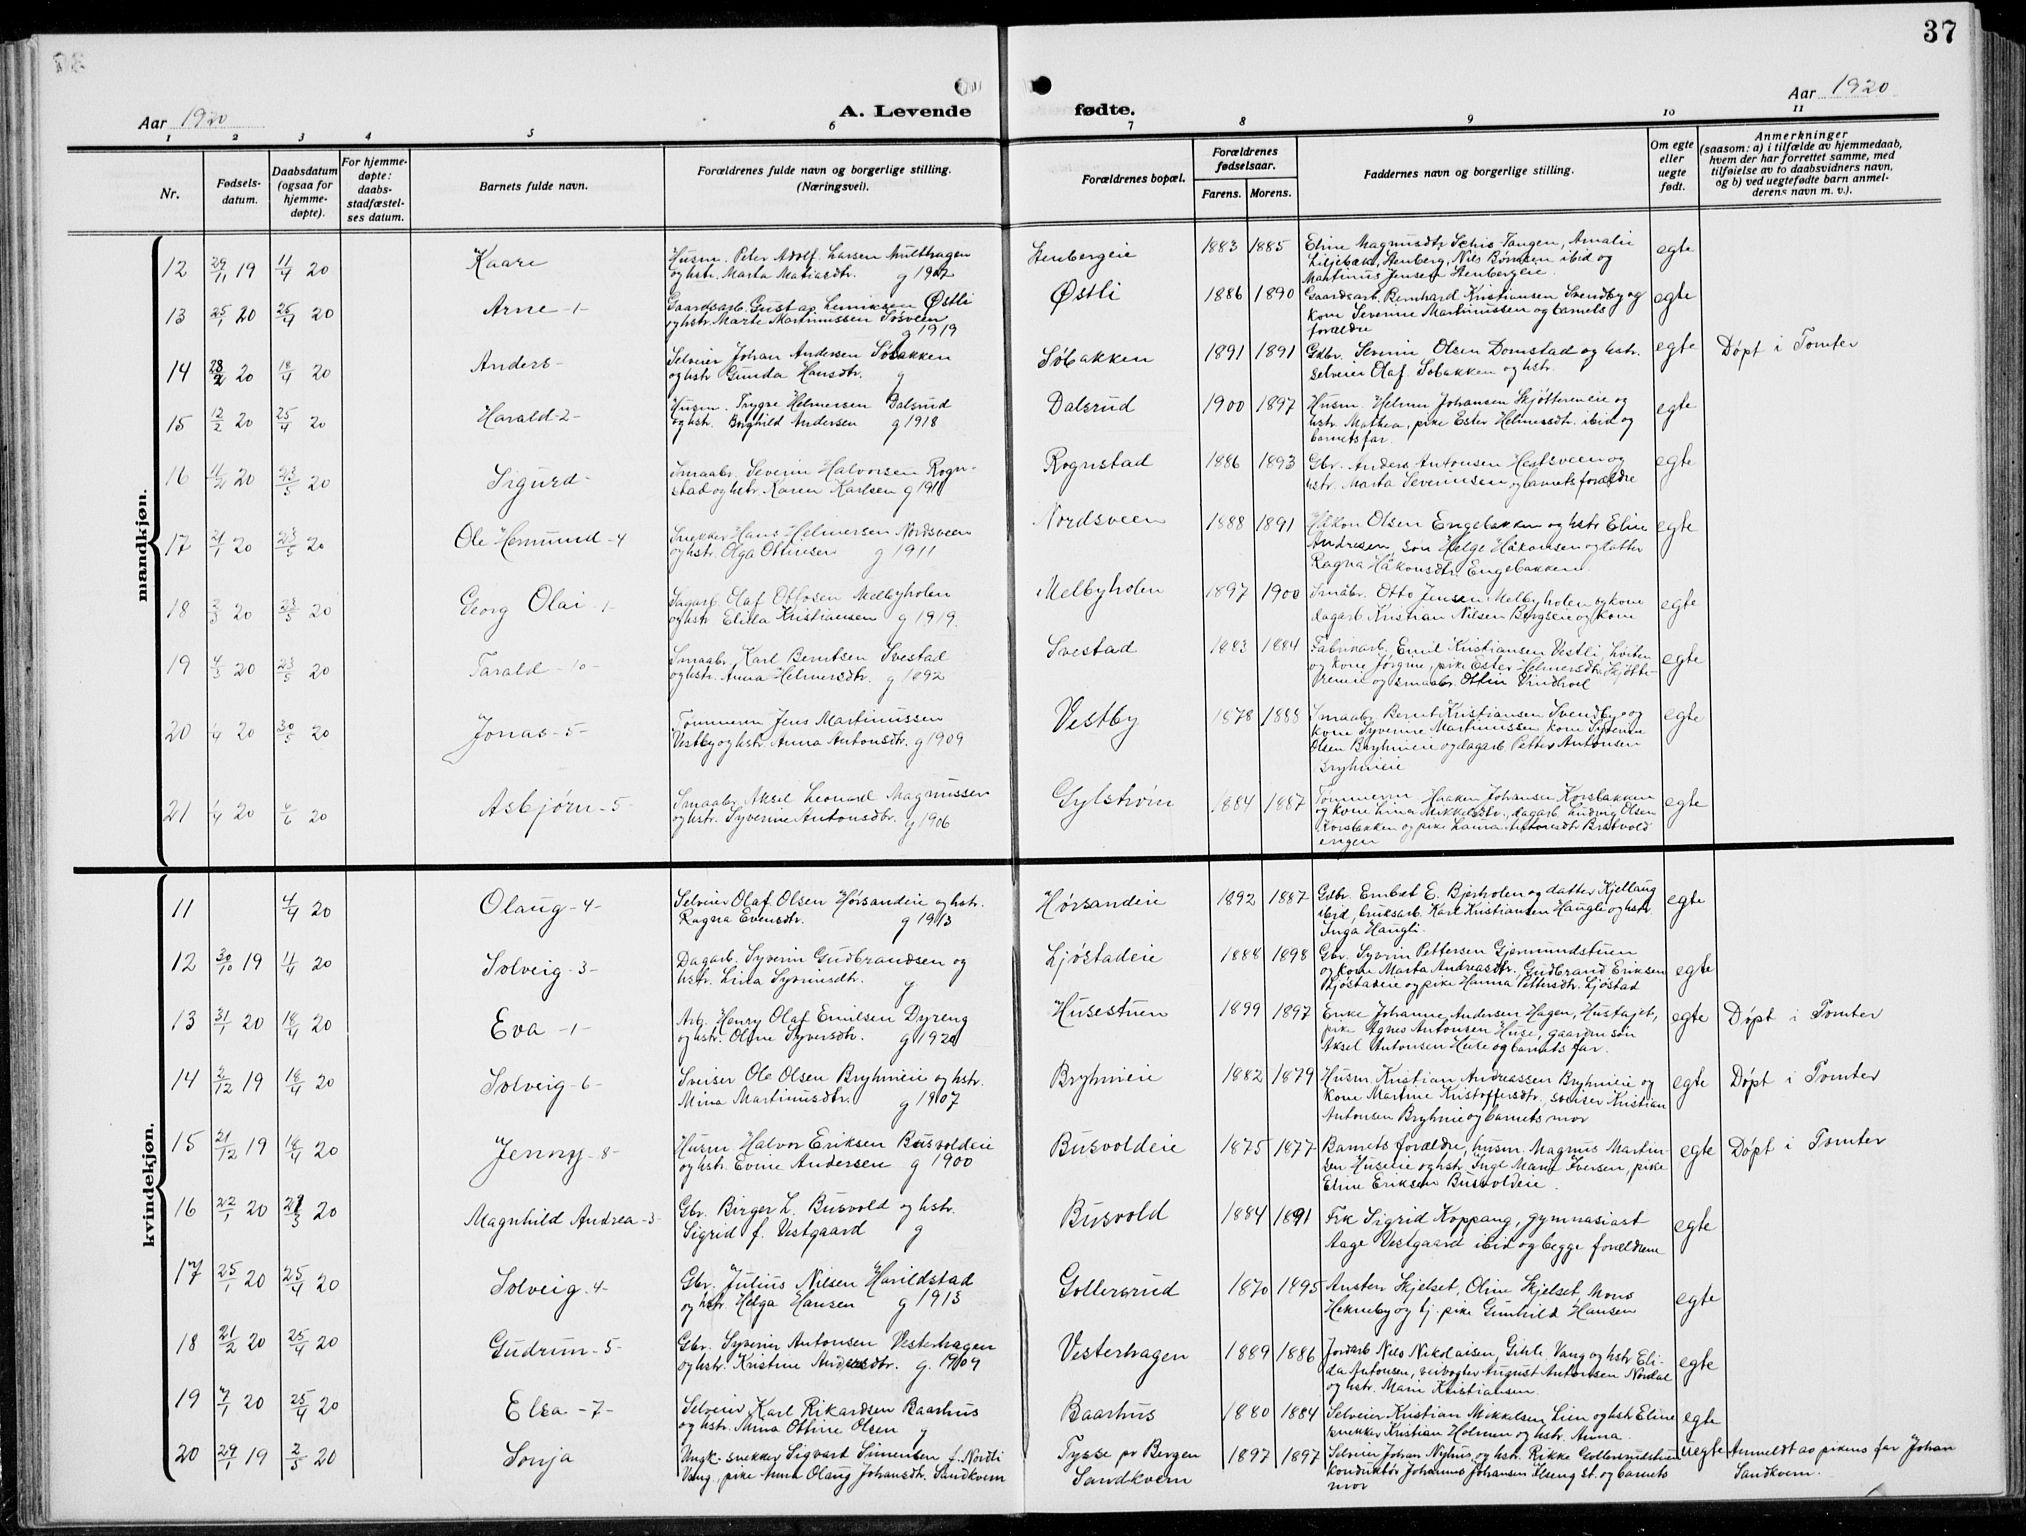 37
Aar 1920
A. Levende
fødte.
Aar 1920
1 2 3 4 5 6 7 8 9 10 11
Nr.
Fødsels-
datum.
Daabsdatum
(ogsaa for
hjemme-
døpte).
For hjemme-
døpte:
daabs-
stadfæstel-
ses datum.
Barnets fulde navn.
Forældrenes fulde navn og borgerlige stilling.
(Næringsvei).
Forældrenes bopæl.
Forældrenes
fødselsaar.
Farens. Morens.
Faddernes navn og borgerlige stilling.
Om egte
eller
uegte
født.
Anmerkninger
(saasom: a) i tilfælde av hjemmedaab,
hvem der har forrettet samme, med
tilføielse av to daabsvidners navn,
og b) ved uegtefødte barn anmel-
derens navn m. v.).
mandkjøn.
12 29/11 19 11/4 20 Kaare
Husm. Peter Adolf Larsen Multhagen
og hstr. Marta Matiasdtr. g 1907
Stenbergeie 1883 1885
Eline Magnusdtr Tangen, Amalie
Liljebæk, Stenberg, Nils ibid og
Martinus Jensen Stenbergeie
egte
13 25/1 20 25/4 20 Arne -1-
Gaardsarb. Gustav Østli
og hstr. Marte Martinussen g 1919
Østli 1886 1890
Gaardsarb. Bernhard Kristiansen Svendby og
kone Severine Martinussen og barnets
forældre
egte
14 28/2 20 18/4 20 Anders -
Selveier Johan Andersen Søbakken
og hstr Gunda Hansdtr. g
Søbakken 1891 1891
Gdbr. Severin Olsen Domstad og hstr.
selveier Olaf Søbakken og hstr.
egte Døpt i Tomter
15 12/2 20 25/4 20 Harald -2-
Husm. Trygve Helmersen Dalsrud
og hstr. Borghild Andersen g 1918
Dalsrud 1900 1897
Husm. Helmer Johansen Skjøttereneie og
hstr. Mathea, pike Ester Helmersdtr. ibid og
barnets far.
egte
16 11/2 20 23/5 20 Sigurd -
Smaabr. Severin Halvorsen Rogn-
stad og hstr. Karen Karlsen g 191
Rognstad 1886 1893
Gbr. Anders Antonsen Hestsveen og
hstr. Marta Severinsen og barnets forældre
egte
17 21/1 20 23/5 20 Ole Hermund -4
Snekker Hans Helmersen Nordsveen
og hstr. Olga Ottinsen g 1911
Nordsveen 1888 1891
Håkon Olsen Engebakken og hstr Eline
Andresen, søn Helge Håkonsen og datter
Ragna Håkonsdtr. Engebakken
egte
18 2/3 20 23/5 20 Georg Olai -1-
Dagarb. Olaf Ottosen Melbyholen
og hstr Elida Kristiansen g 1919.
Melbyholen 1897 1900
Småbr. Otto Jensen Melbyholen og kone
dagarb Kristian Nilsen Bergseie og kone
egte
19 4/3 20 23/5 20 Tarald -10-
Smaabr. Karl Berntsen Svestad
og hstr. Anna Helmersdtr. g 1892
Svestad 1883 1884
Fabrikarb. Emil Kristiansen Vestli
og kone Jørgine, pike Ester Helmersdtr. Skjøtte-
reneie og smaabr. Ottin
egte
20 1/4 20 30/5 20 Jonas -5-
Tømmerm Jens Martinussen
Vestby og hstr. Anna Antonsdtr. g 1909
Vestby 1878 1888
Smaabr Bernt Kristiansen Svendby og
kone Syverine Martinussen kone Syverin
Olsen Bryhnieie og dagarb Petter Antonsen
Bryhnieie
egte
21 1/4 20 6/6 20 Asbjørn -5-
Smaabr. Aksel Leonard Magnussen
og hstr. Syverine Antonsdtr. g 1906
Gylstrøm 1884 1887
Tømmerm Haaken Johansen Korsbakken
og kone Lina Mikkelsdtr., dagarb Ludvig Olsen
Korsbakken og pike Laura Antonsdtr Brustvold
engen
egte
kvindekjøn.
11 4/4 20 Olaug -4-
Selveier Olaf Olsen Hørsandeie og hstr.
Ragna Evensdtr. g 1913
Hørsandeie 1892 1887
Gdbr. Embret E. Bjerholen og datter Kjellaug
ibid, bruksarb. Karl Kristiansen Haugli og hstr
Inga Haugli.
egte
12 30/10 19 11/4 20 Solveig -3-
Dagarb. Syverin Gudbrandsen og
hstr. Lina Syverinsdtr. g
Ljøstadeie 1884 1898
Gbr. Syverin Pettersen Gjermundstuen
og kone Marta Andreasdtr. Gudbrand Eriksen
Ljøstadeie og pike Hanna Pettersdtr. Ljøstad
egte
13 31/1 20 18/4 20 Eva -1-
Arb. Henry Olaf Emilsen Dyreng
og hstr. Oline Syversdtr. g 1920
Husestuen 1899 1897
Enke Johanne Andersen Hagen, Hustajet,
pike Agnes Antonsen Huse, gaardm søn
Aksel Antonsen Huse og barnets far.
egte Døpt i Tomter
14 2/12 19 18/4 20 Solveig -6-
Sveiser Ole Olsen Bryhnieie og hstr.
Mina Martinusdtr. g 1907
Bryhnieie 1882 1879
Husm. Kristian Andreassen Bryhnieie og
kone Martine Kristoffersdtr., sveiser Kristian
Antonsen Bryhnie og barnets mor
egte Døpt i Tomter
15 21/12 19 18/4 20 Jenny -8-
Husm Halvor Eriksen Busvoldeie
og hstr. Evine Andersen g 1900
Busvoldeie 1875 1877
Barnets forældre, husm. Magnus Martin-
sen Huseeie og hstr. Inge Marie Iversen, pike
Eline Eriksen Busvoldeie.
egte Døpt i Tomter
16 22/1 20 21/3 20 Magnhild Andrea -3-
Gbr. Birger L. Busvold og hstr.
Sigrid f. Vestgaard g
Busvold 1884 1891
Frk Sigrid Koppang, gymnasiast
Aage Vestgaard ibid og begge forældrene
egte
17 25/1 20 25/4 20 Solveig -4-
Gbr. Julius Nilsen Harildstad
og hstr. Helga Hansen g 1913
Gollersrud 1870 1895
Austen Skjelset, Oline Skjelset, Mons
Hekneby og tj. pike Gunhild Hansen
egte
18 21/2 20 25/4 20 Gudrun -5-
Gbr. Syverin Antonsen Vesterhagen
og hstr. Kristine Andersdtr. g. 1909
Vesterhagen 1889 1886
Jordarb Nils Nikolaisen, Gihle Vang og hstr Eli-
da Antonsen, veivogter August Antonsen Nordal
og hstr. Marie Kristiansen.
egte
19 7/1 20 25/4 20 Elsa -7-
Selveier Karl Rikardsen Baarhus
og hstr. Mina Ottine Olsen g
Baarhus 1880 1884
Selveier Kristian Mikkelsen Lien og hstr Eline
snekker Kristian Holmen og hstr. Anna.
egte
20 29/1 19 2/5 20 Sonja
Ungk. snekker Sigvart Simensen f. Nordli
Vang, pike Anna Olaug Johansdtr. Sandkvern
Tysse pr Bergen
Sandkvern
1897 1897
Selveier Johan Nyhus og hstr. Rikke Gollersrudstuen
konduktør Johannes Johansen Ilseng st. og barnets
mor
uegte Anmeldt av pikens far Johan
Sandkvern.